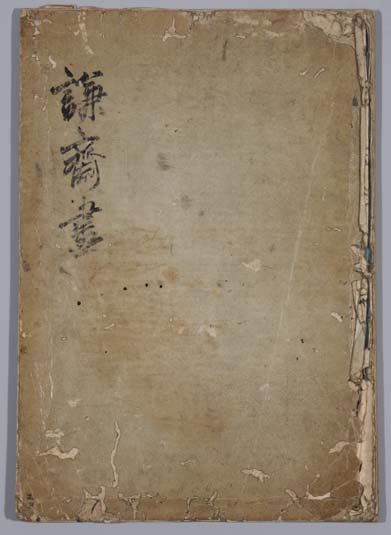 謙齋畫